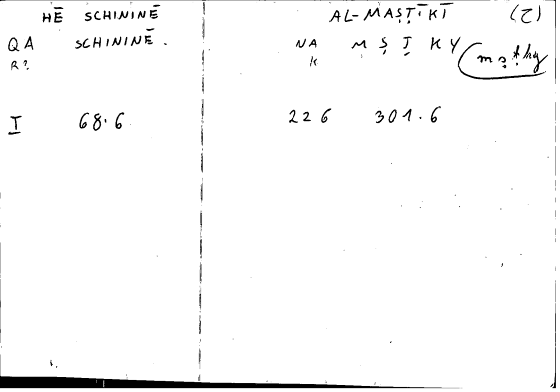 HĒ SCHININĒ
QA SCHININĒ.
R?
I 68.6
AL-MAṢṬĪKĪ (ح)
NA M Ṣ Ṭ K Y
K mṣṭky
226 301.6